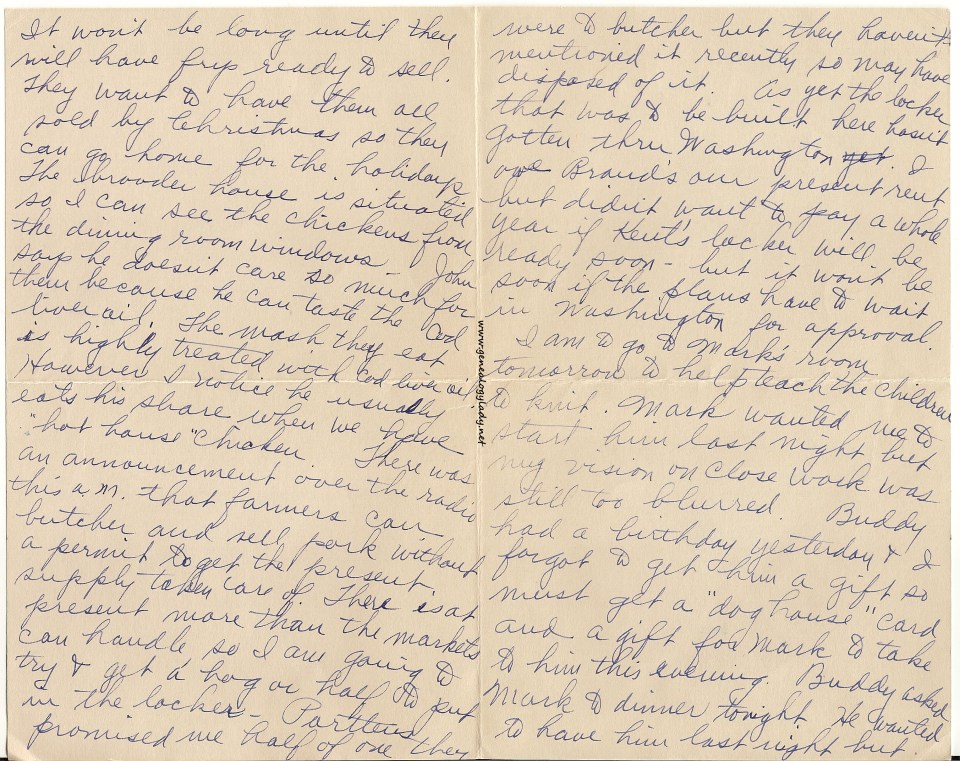 It won't be long until they
will have frys ready to sell.
They want to have them all
sold by Christmas so they
can go home for the holidays
The brooder house is situated
so I can see the chickens from
the dining room windows - John
says he doesn't care so much for
them because he can taste the Cod
liver oil. The mash they eat
is highly treated with cod liver oil.
However I notice he usually
eats his share when we have
"hot house" chicken. There was
an announcement over the radio
this a.m. that farmers can
butcher and sell pork without
a permit to get the present
supply taken care of. There is at
present more than the markets
can handle so I am going to
try & get a hog or half to put
in the locker - Partlens
promised me half of one they
were to butcher but they haven't
mentioned it recently so may have
disposed of it. As yet the locker
that was to be built here hasn't
gotten thru Washington yet. I
owe Brand's our present rent
but didn't want to pay a whole
year if Kent's locker will be
ready soon - but it won't be
soon if the plans have to wait
in Washington for approval.
I am to go to Mark's room
tomorrow to help teach the children
to knit. Mark wanted me to
start him last night but
my vision on close work was
still too blurred. Buddy
had a birthday yesterday & I
forgot to get him a gift so
must get a "dog house" card
and a gift for Mark to take
to him this evening. Buddy asked
Mark to dinner tonight. He wanted
to have him last night but
www.genealogylady.net